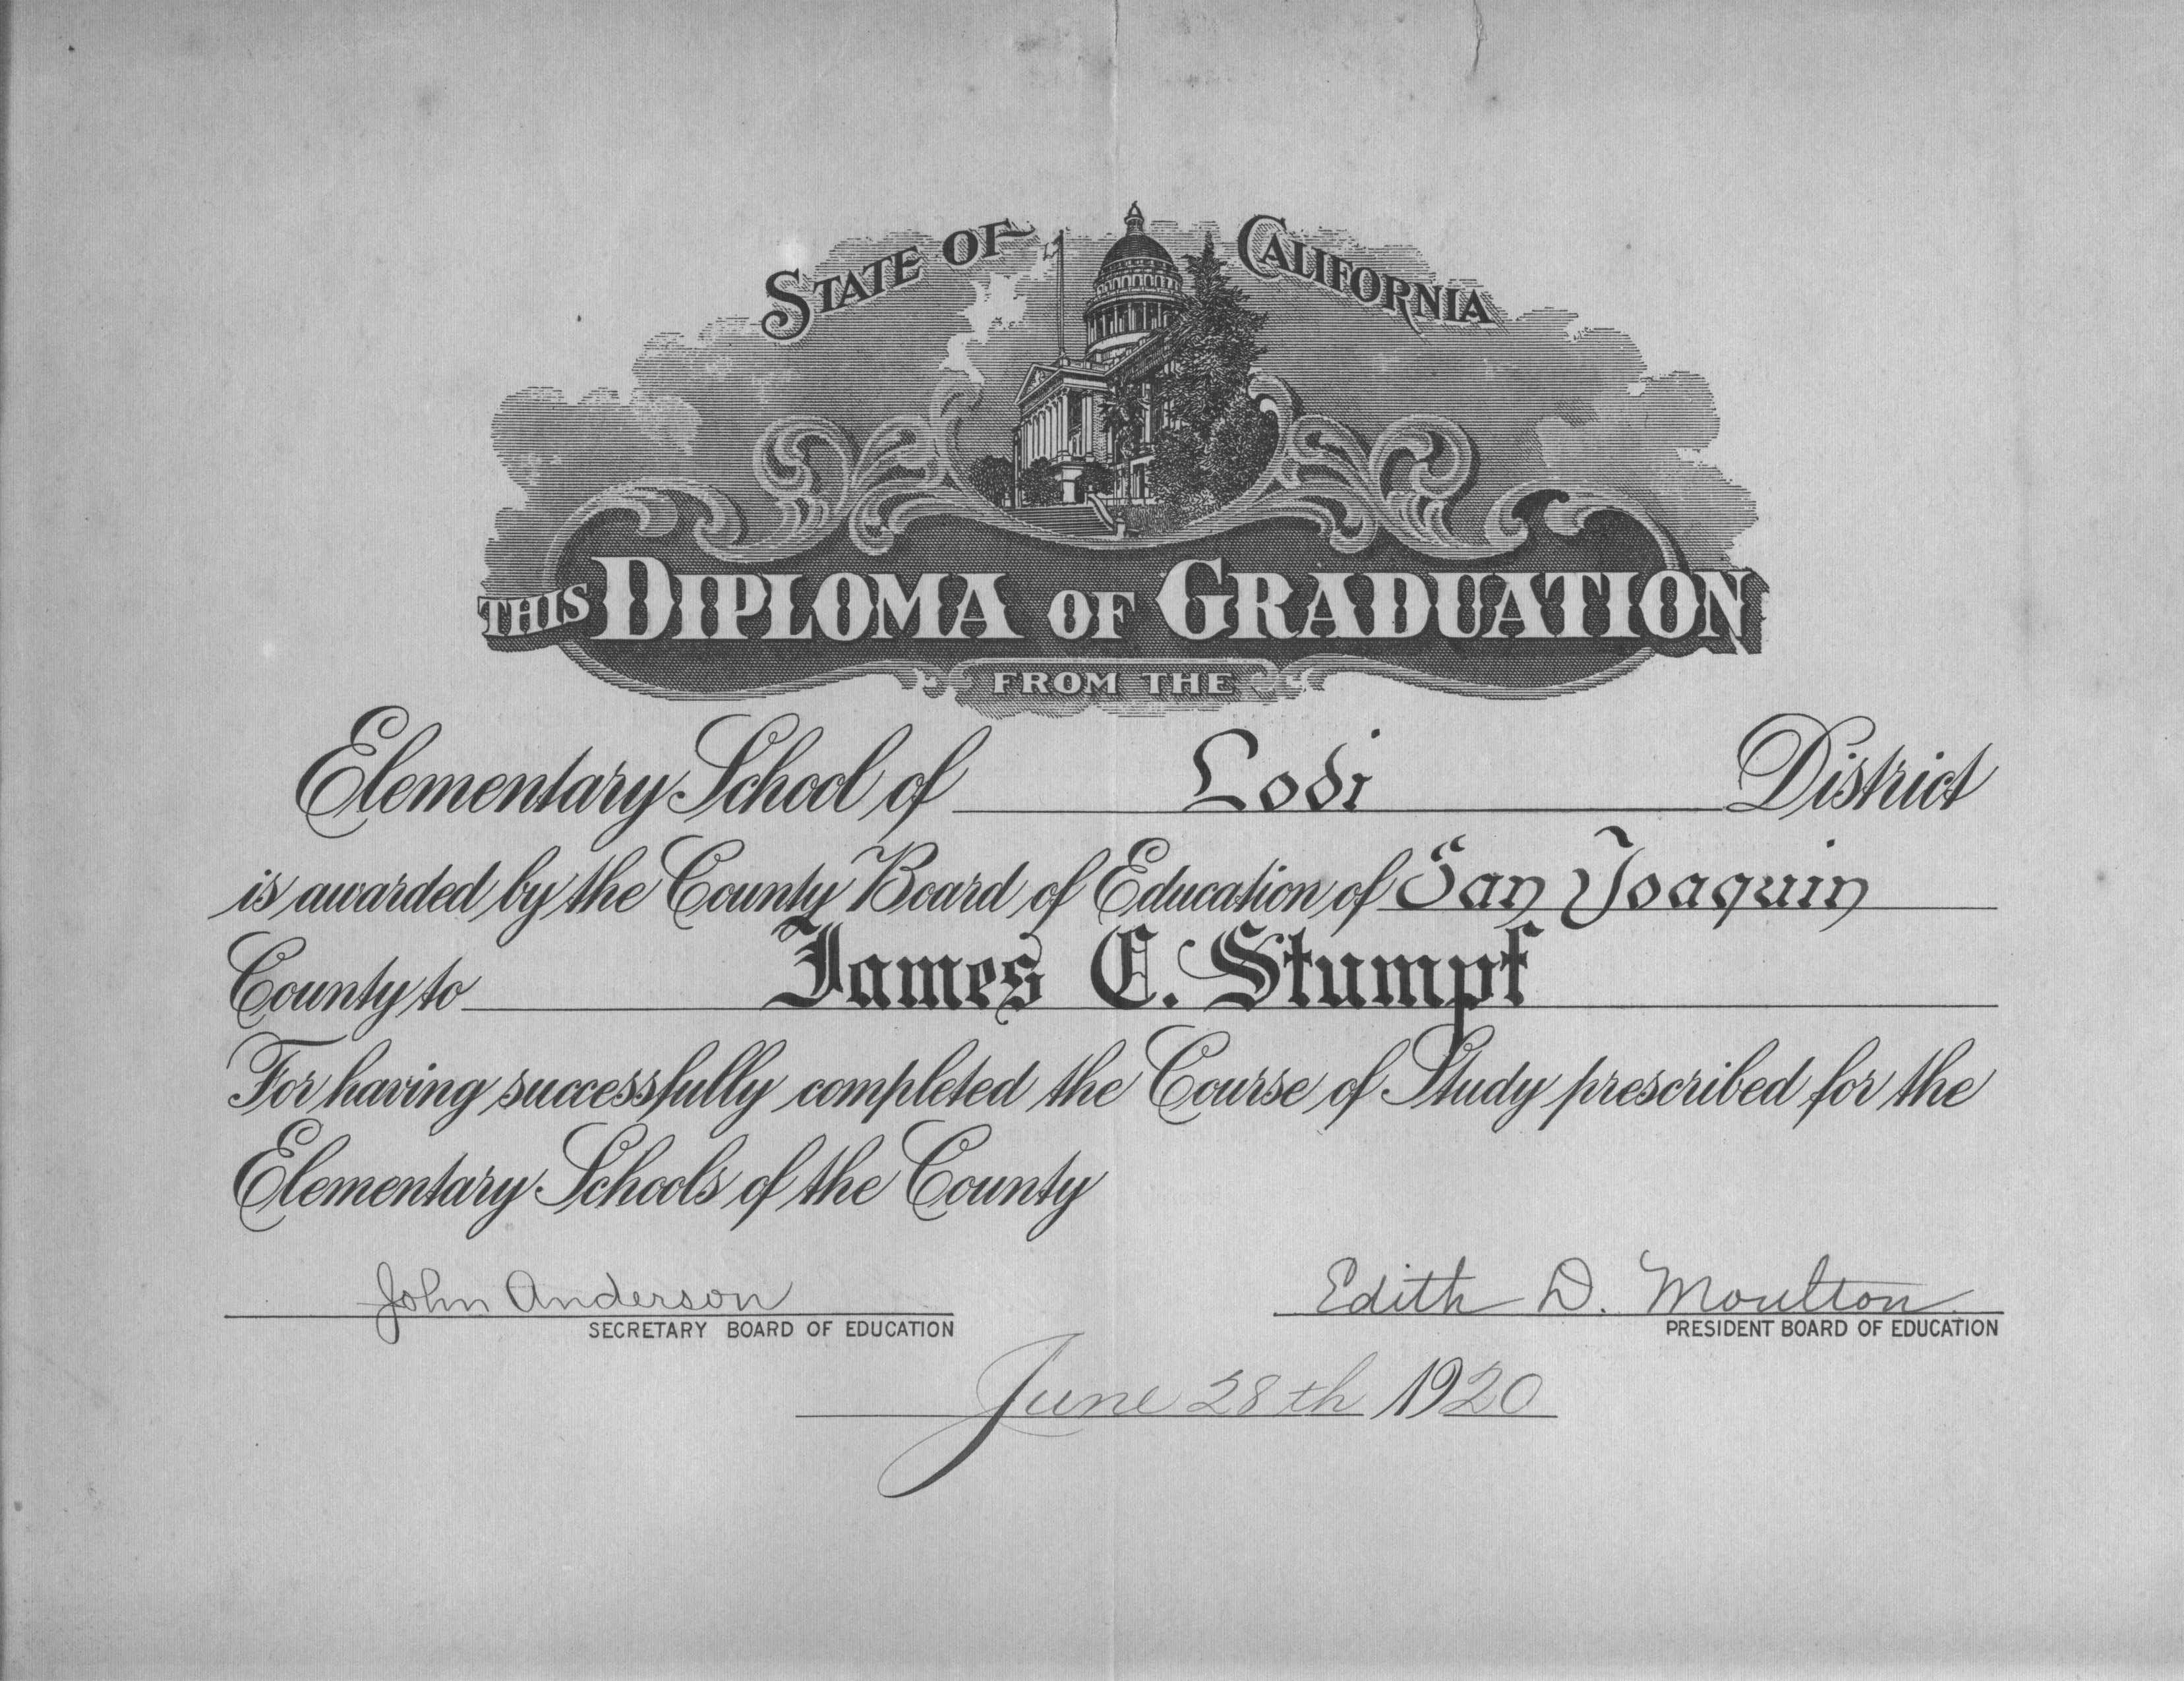 STATE OF CALIFORNIA
THIS DIPLOMA OF GRADUATION
FROM THE
Elementary School of Lodi District
is awarded by the County Board of Education of San Joaquin
County to James C. Stumpf
For having successfully completed the Course of Study prescribed for the
Elementary Schools of the County
John Anderson Edith D. Moulton
SECRETARY BOARD OF EDUCATION PRESIDENT BOARD OF EDUCATION
June 28th 1920